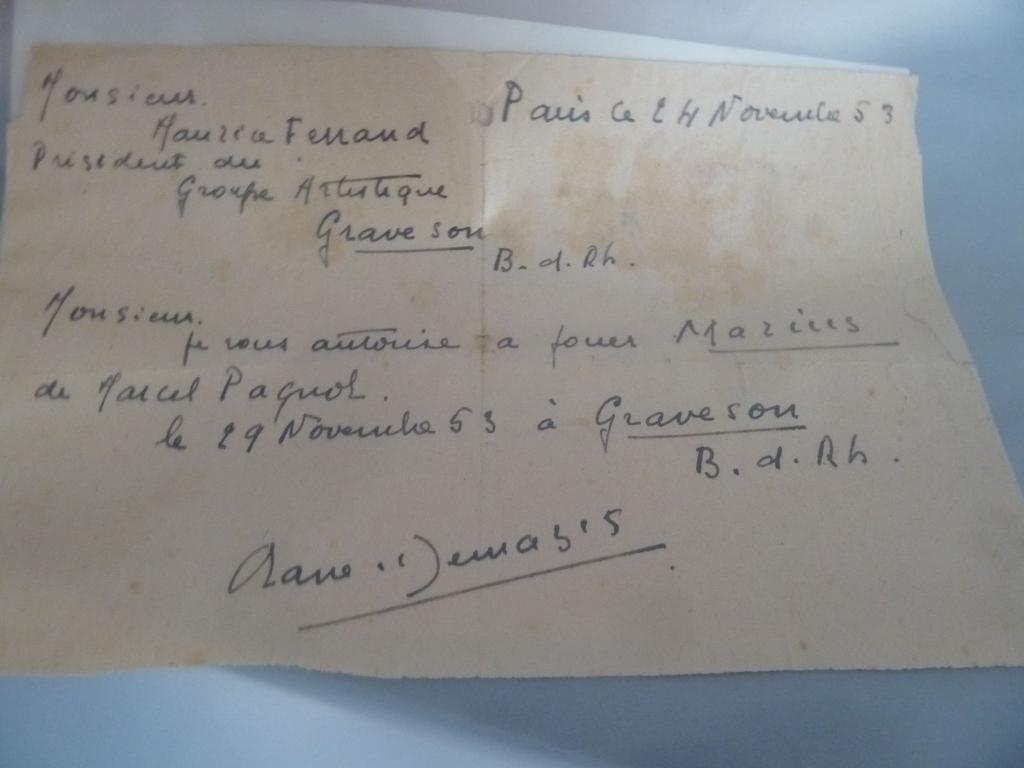 Monsieur.
Paris le 24 Novembre 53
Maurice Ferrand
Président du
Groupe Artistique
Graveson
B. d. Rh.
Monsieur.
je vous autorise a jouer Marius
de Marcel Pagnol.
le 29 Novembre 53 à Graveson
B. d. Rh.
Orane Demazis